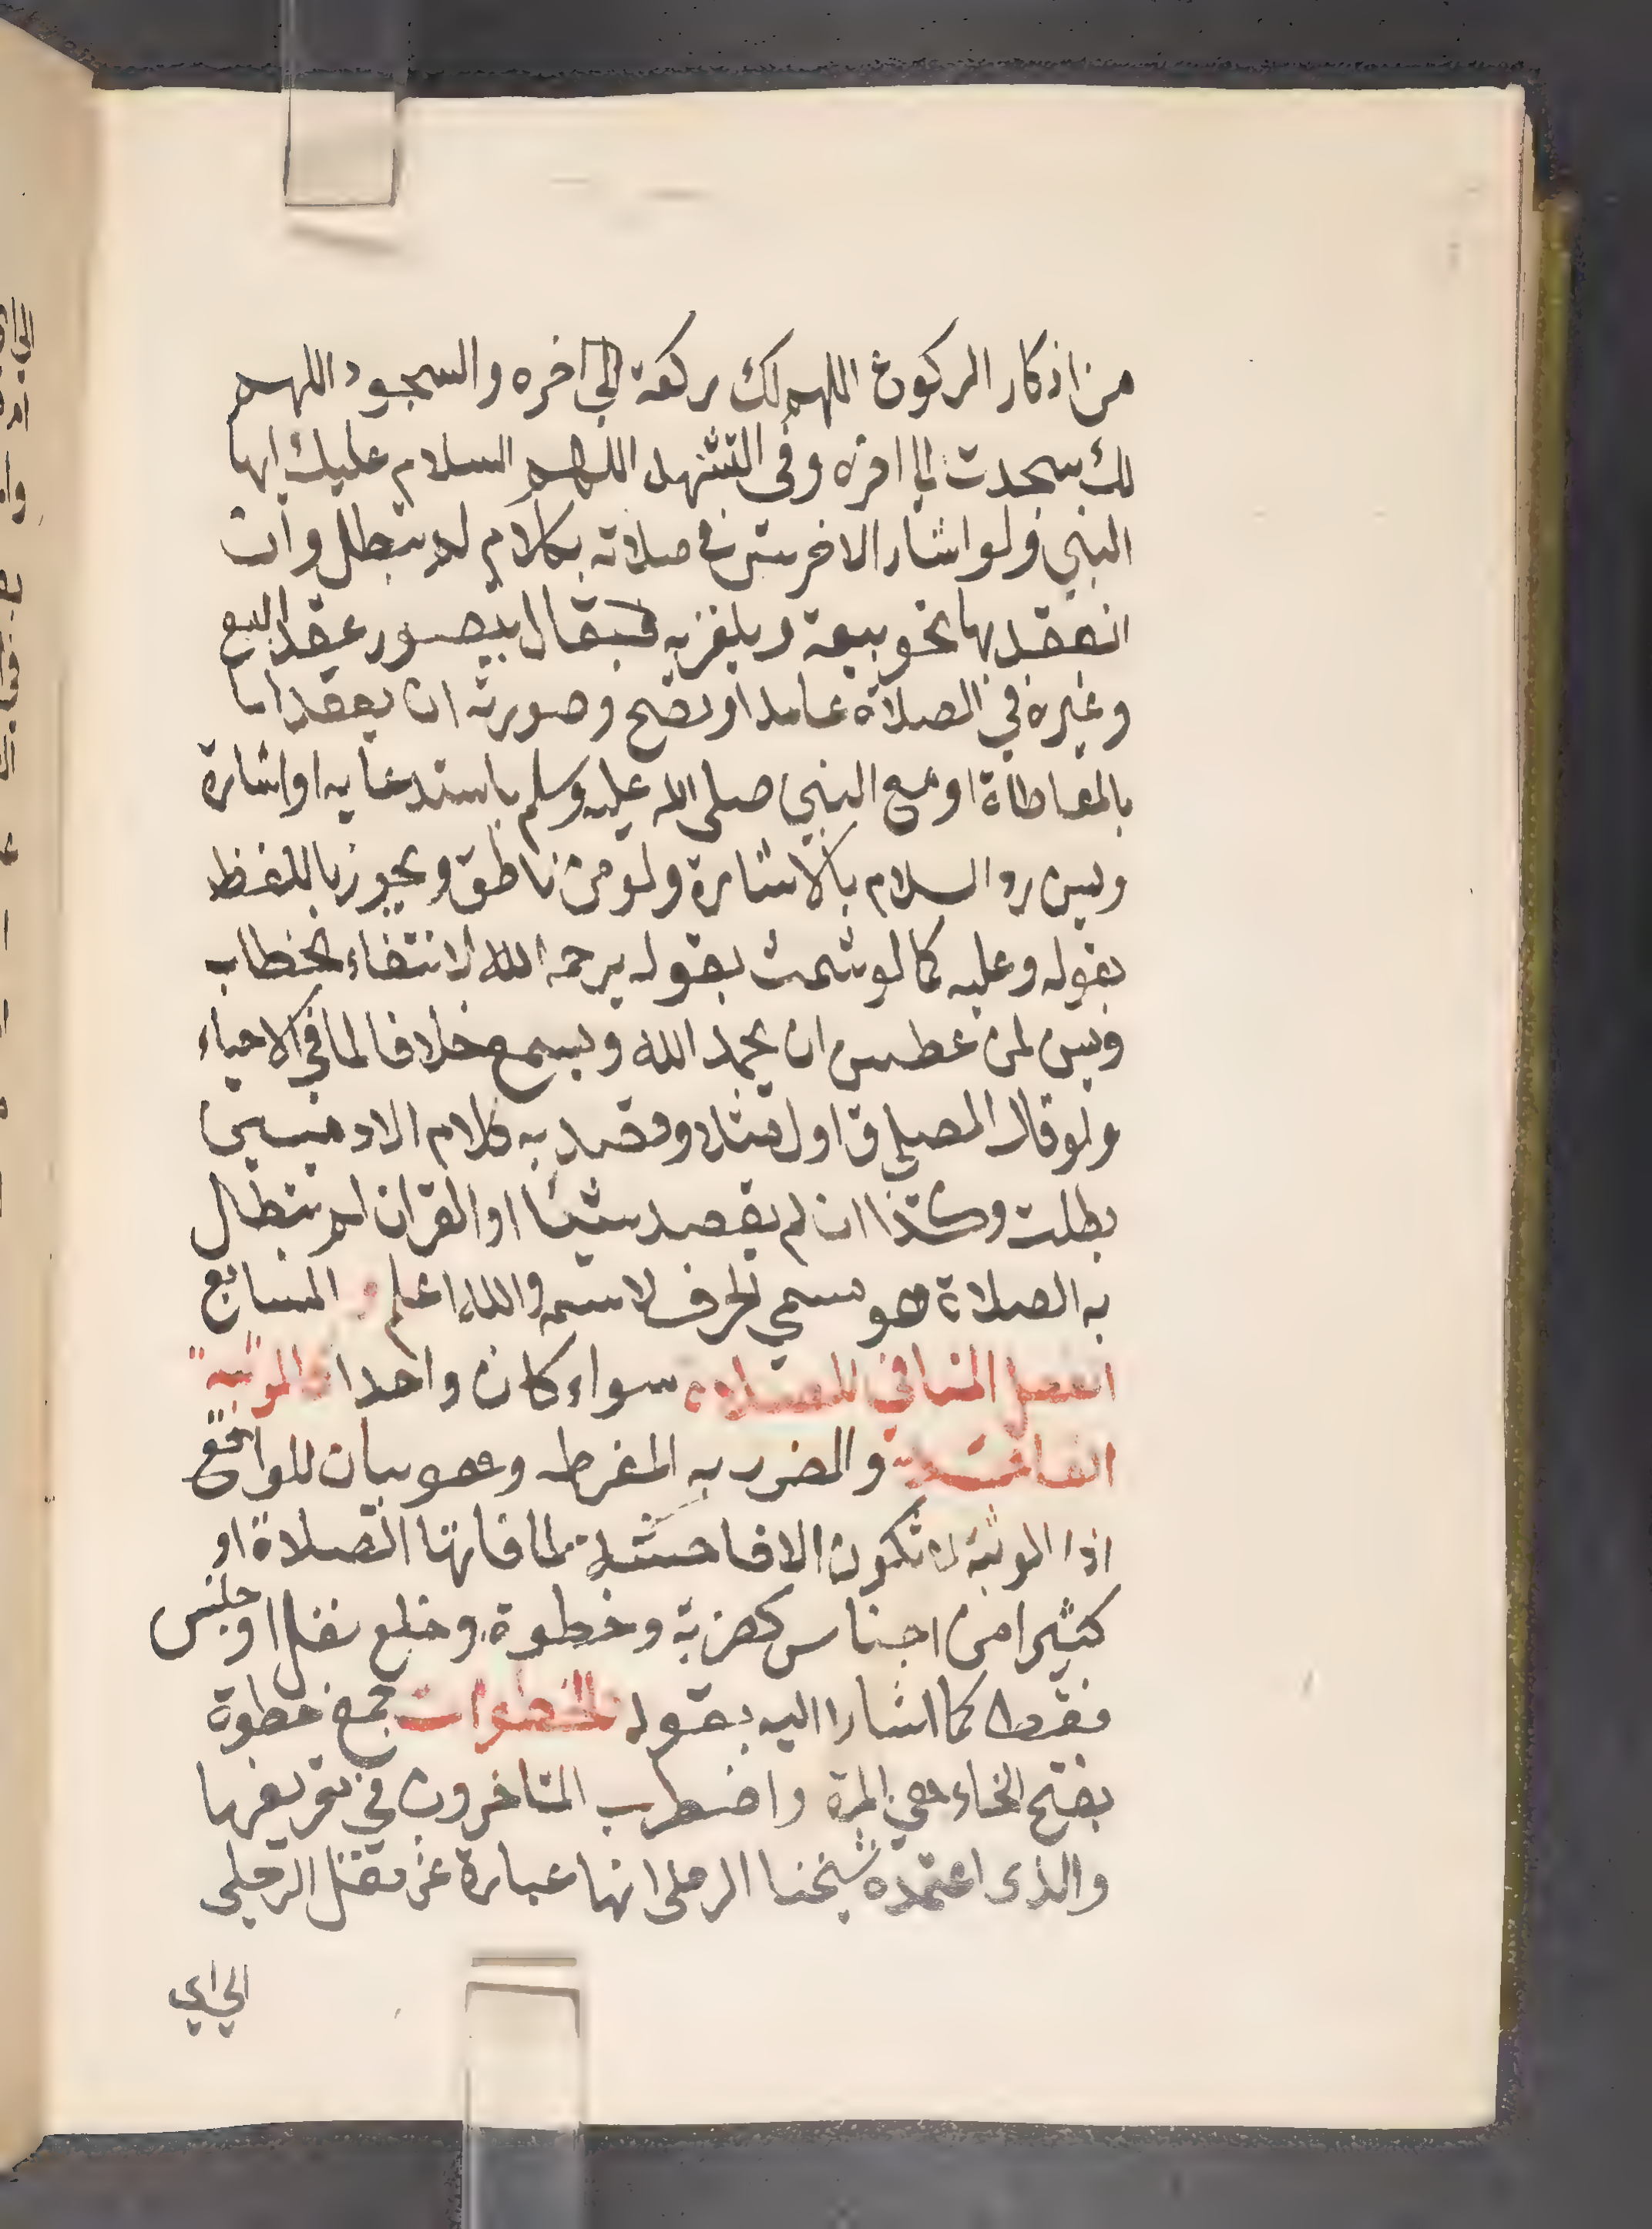 من اذكار الركوع اللهم لك ركعت الى اخره والسجود اللهم
لك سجدت الى اخره وفي التشهد اللهم السلام عليك ايها
النبي ولو اشار الاخرس في صلاته بكلام لم تبطل وان
انعقد بها نحو بيعه ويلغز به فيقال يتصور عقد البيع
وغيره في الصلاة عامدا وتصح وصورته ان يعقد اما
بالمعاطاة او مع النبي صلى الله عليه وسلم باستدعايه او اشارة
ويسن رد السلام بالاشارة ولو من ناطق ويجوز باللفظ
بقوله وعليه كما لو شمت بقوله يرحمه الله لانتفاء الخطاب
ويسن لمن عطس ان يحمد الله ويسمع خلافا لما في الاحياء
ولو قال المصلي ق او ل مثلا وقصد به كلام الادميين
بطلت وكذا ان لم يقصد شيئا او القران لم تبطل
به الصلاة هو مسمى الحرف لا اسمه والله اعلم و السابع
الفعل المنافي للصلاة سواء كان واحدا كالوثبة
الفاحشة والضربه المفرطه وهو بيان للواقع
اذا الوثبة لا تكون الا فاحشة لمنافاتها الصلاة او
كثيرا من اجناس كضربة وخطوة وخلع نعل او جنس
فقط كما اشار اليه بقوله كالخطوات جمع خطوة
بفتح الخاء وهي المرة واضطرب المتاخرون في تعريفها
والذى اعتمده شيخنا الرملى انها عبارة عن نقل الرجلى
الى اى